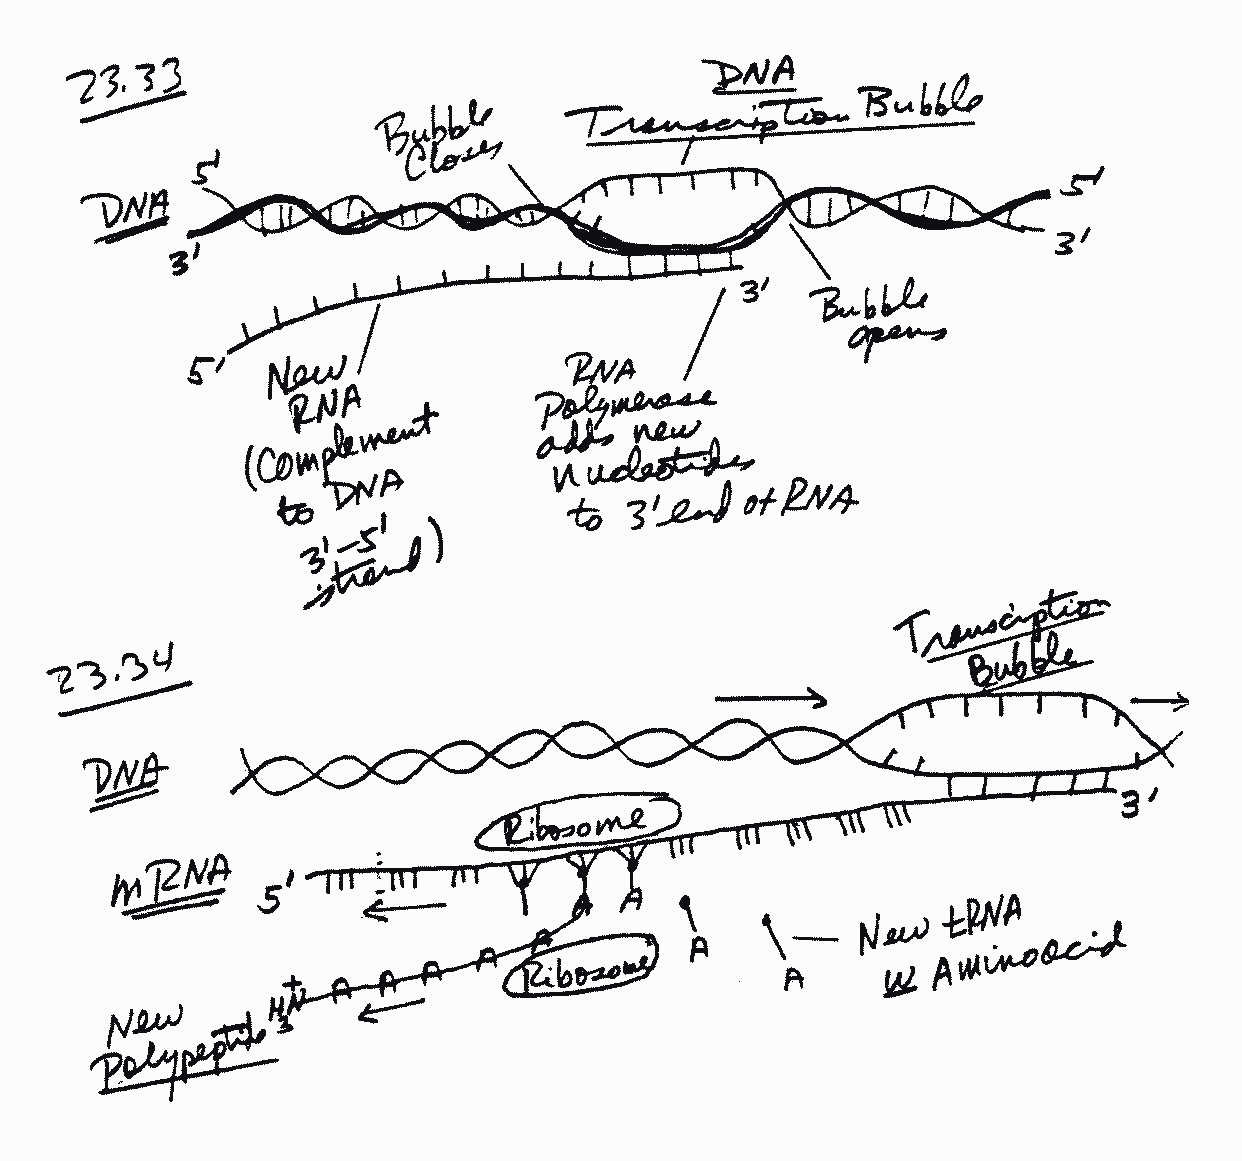 23.33
DNA
Transcription Bubble
Bubble
Closes
5'
DNA
3'
5'
3'
3'
Bubble
opens
5'
New
RNA
(Complement
to DNA
3'-5'
strand)
RNA
Polymerase
adds new
nucleotides
to 3' end of RNA
23.34
Transcription
Bubble
DNA
3'
Ribosome
mRNA
5'
A A
A A A A A
A
A
Ribosome
New tRNA
w Aminoacid
H3N+
New
Polypeptide